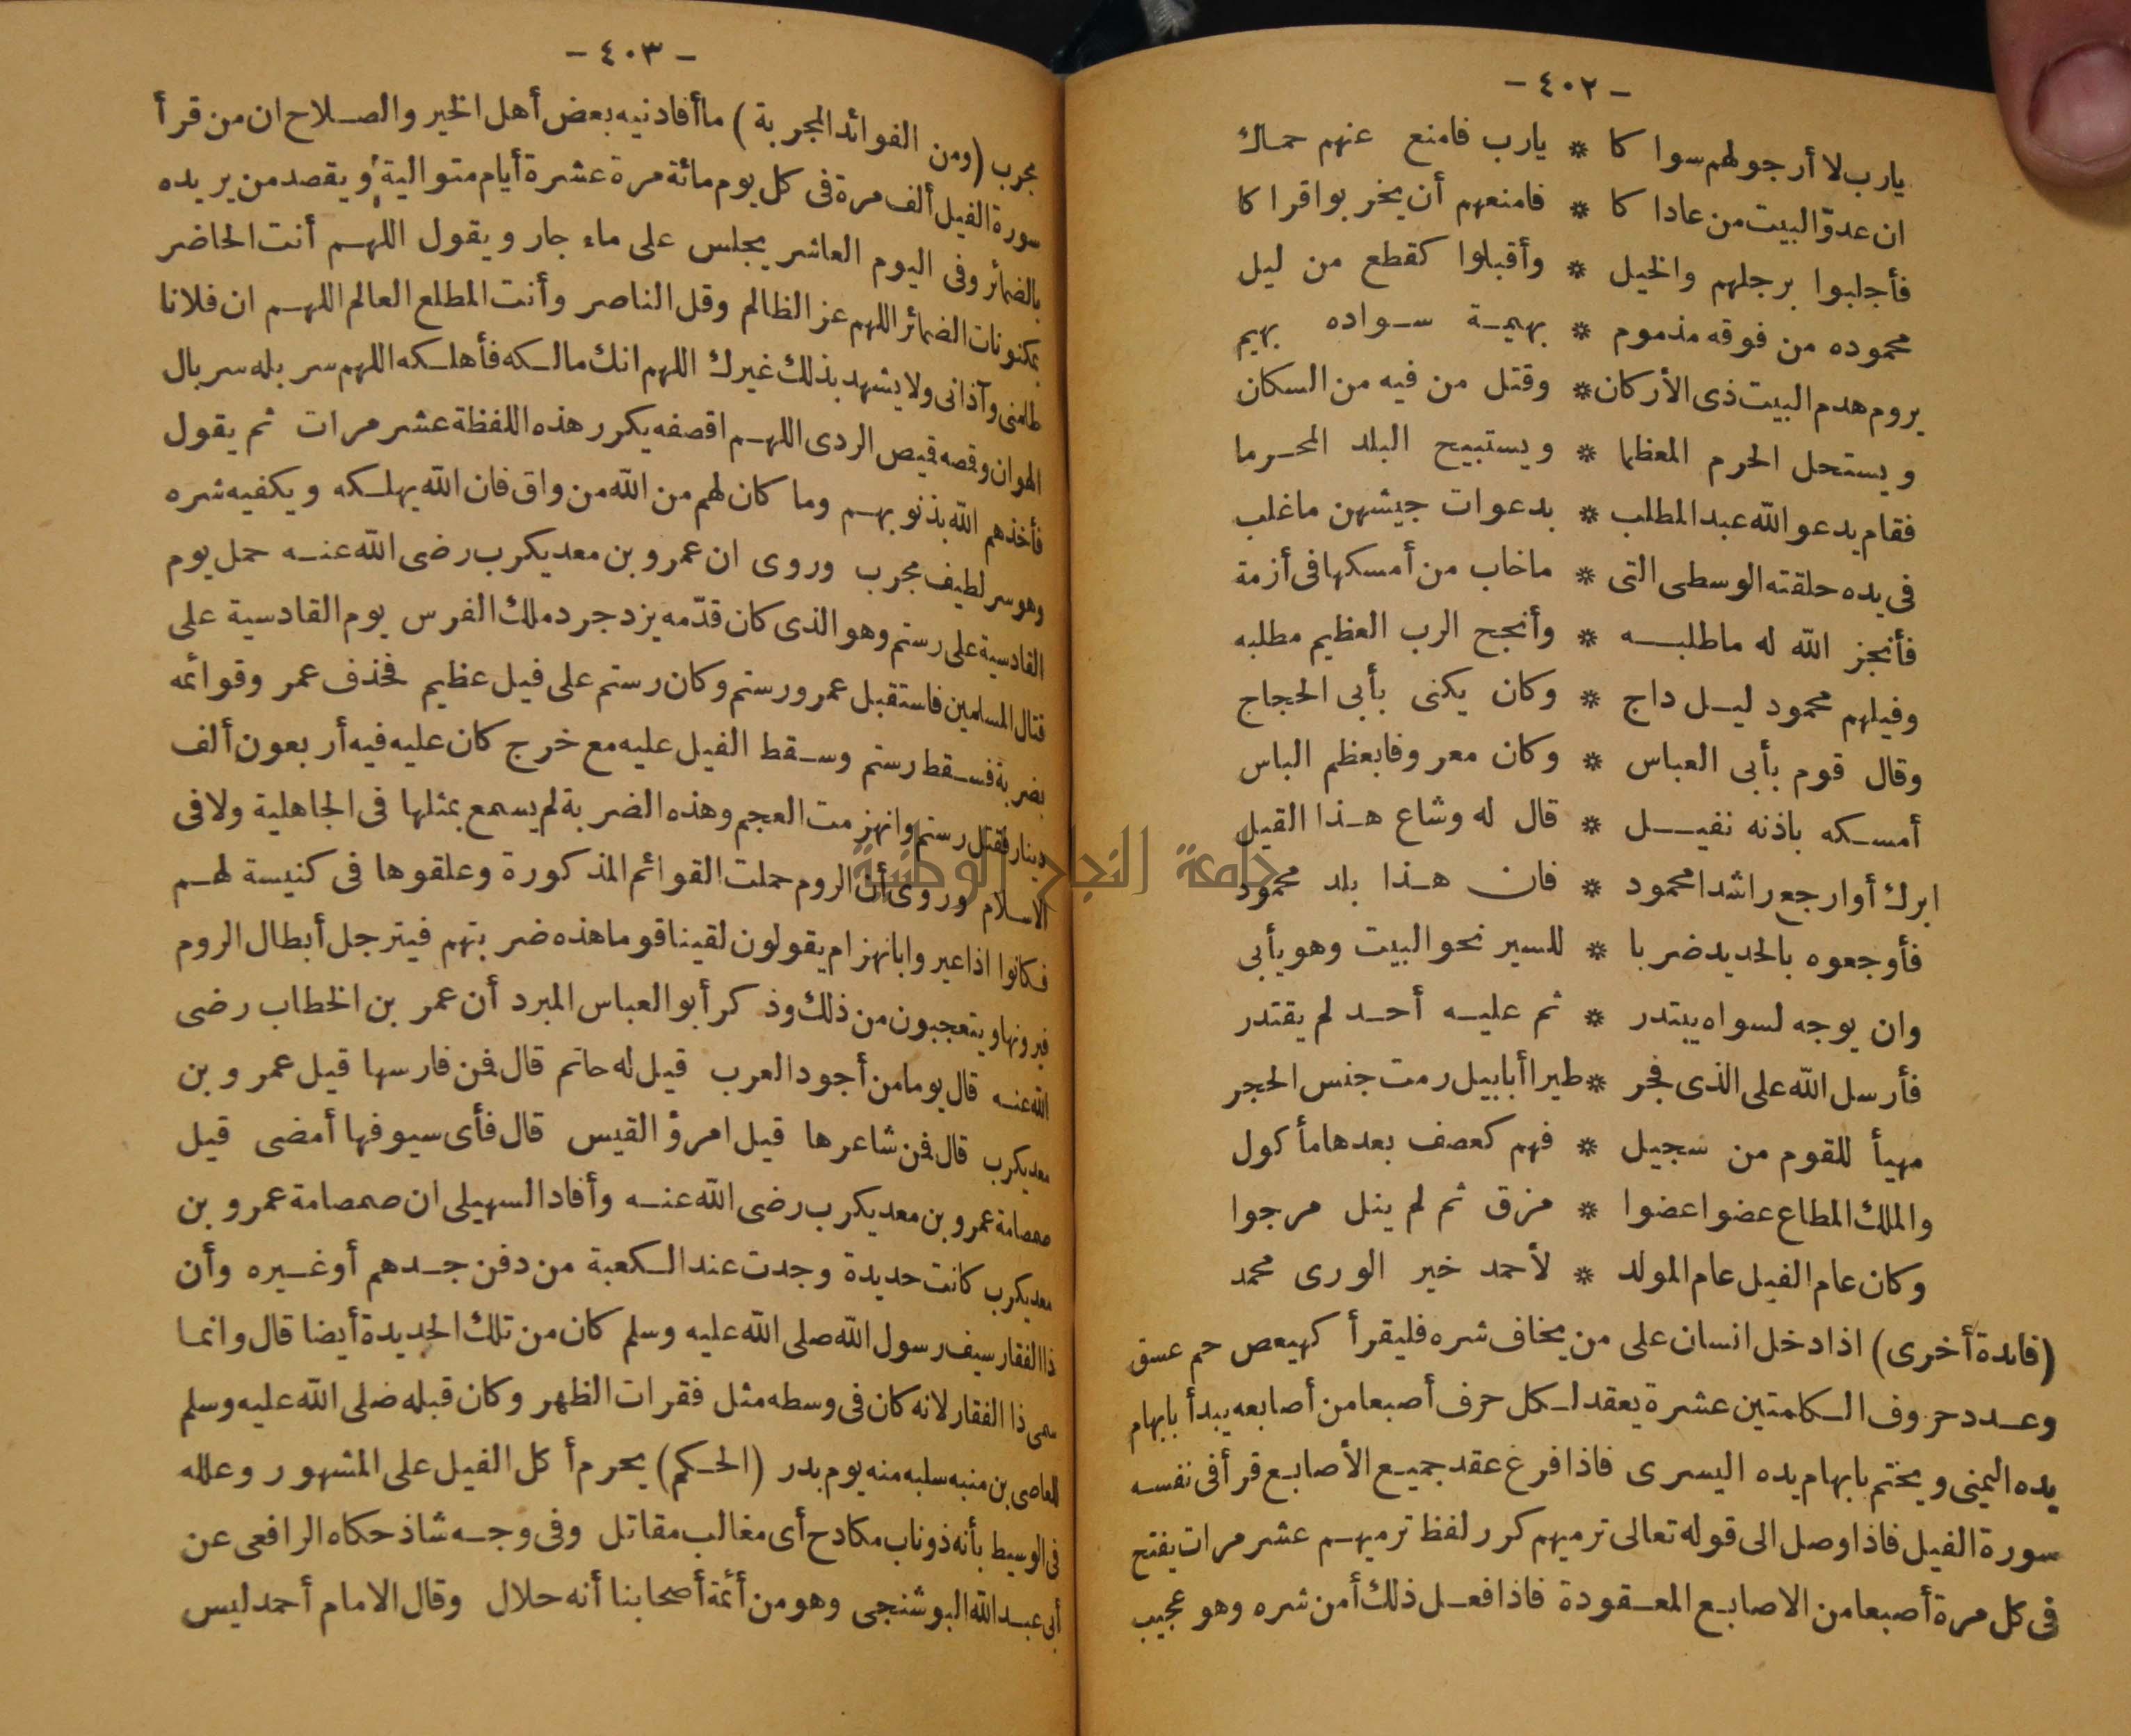 - ٤٠٢ -
يارب لا أرجو لهم سواكا * يارب فامنع عنهم حماك
ان عدوّ البيت من عاداكا * فامنعهم أن يخربوا قراكا
فأجلبوا برجلهم والخيل * وأقبلوا كقطع من ليل
محموده من فوقه مذموم * بهيمة سواده بهيم
يروم هدم البيت ذى الأركان * وقتل من فيه من السكان
ويستحل الحرم المعظما * ويستبيح البلد المحرما
فقام يدعو الله عبد المطلب * بدعوات جيشهن ما غلب
فى يده حلقته الوسطى التى * ما خاب من أمسكها فى أزمة
فأنجز الله له ما طلبه * وأنجح الرب العظيم مطلبه
وفيلهم محمود ليل داج * وكان يكنى بأبى الحجاج
وقال قوم بأبى العباس * وكان معروفا بعظم الباس
أمسكه باذنه نفيل * قال له وشاع هذا القيل
ابرك أوارجع راشدا محمود * فان هذا بلد محمود
فأوجعوه بالحديد ضربا * للسير نحو البيت وهو يأبى
وان يوجه لسواه يبتدر * ثم عليه أحد لم يقتدر
فأرسل الله على الذى فجر * طيرا أبابيل رمت جنس الحجر
مهيأ للقوم من سجيل * فهم كعصف بعدها مأكول
والملك المطاع عضوا عضوا * مزق ثم لم ينل مرجوا
وكان عام الفيل عام المولد * لأحمد خير الورى محمد
(فائدة أخرى) اذا دخل انسان على من يخاف شره فليقرأ كهيعص حم عسق
وعدد حروف الكلمتين عشرة يعقد لكل حرف أصبعا من أصابعه يبدأ بابهام
يده اليمنى ويختم بابهام يده اليسرى فاذا فرغ عقد جميع الأصابع قرأ فى نفسه
سورة الفيل فاذا وصل الى قوله تعالى ترميهم كرر لفظ ترميهم عشر مرات يفتح
فى كل مرة أصبعا من الاصابع المعقودة فاذا فعل ذلك أمن شره وهو عجيب
- ٤٠٣ -
مجرب (ومن الفوائد المجربة) ما أفادنيه بعض أهل الخير والصلاح ان من قرأ
سورة الفيل ألف مرة فى كل يوم مائة مرة عشرة أيام متوالية ويقصد من يريده
بالضمائر وفى اليوم العاشر يجلس على ماء جار ويقول اللهم أنت الحاضر
بمكنونات الضمائر اللهم عز الظالم وقل الناصر وأنت المطلع العالم اللهم ان فلانا
ظلمنى وآذانى ولا يشهد بذلك غيرك اللهم انك مالكه فأهلكه اللهم سربله سربال
الهوان وقمصه قيص الردى اللهم اقصفه يكرر هذه اللفظة عشر مرات ثم يقول
فأخذهم الله بذنوبهم وما كان لهم من الله من واق فان الله يهلكه ويكفيه شره
وهو سر لطيف مجرب وروى ان عمرو بن معديكرب رضى الله عنه حمل يوم
القادسية على رستم وهو الذى كان قدّمه يزدجرد ملك الفرس يوم القادسية على
قتال المسلمين فاستقبل عمرو رستم وكان رستم على فيل عظيم فخذف عمر وقوائمه
بضربة فسقط رستم وسقط الفيل عليه مع خرج كان عليه فيه أربعون ألف
دينار فقتل رستم وانهزمت العجم وهذه الضربة لم يسمع بمثلها فى الجاهلية ولا فى
الاسلام وروى أن الروم حملت القوائم المذكورة وعلقوها فى كنيسة لهم
فكانوا اذا عيروا بانهزام يقولون لقينا قوما هذه ضربتهم فيترجل أبطال الروم
فيرونها ويتعجبون من ذلك وذكر أبو العباس المبرد أن عمر بن الخطاب رضى
الله عنه قال يوما من أجود العرب قيل له حاتم قال فمن فارسها قيل عمرو بن
معديكرب قال فمن شاعرها قيل امرؤ القيس قال فأى سيوفها أمضى قيل
صمصامة عمرو بن معديكرب رضى الله عنه وأفاد السهيلى ان صمصامة عمرو بن
معديكرب كانت حديدة وجدت عند الكعبة من دفن جدهم أو غيره وأن
ذا الفقار سيف رسول الله صلى الله عليه وسلم كان من تلك الحديدة أيضا قال وانما
سمى ذا الفقار لانه كان فى وسطه مثل فقرات الظهر وكان قبله صلى الله عليه وسلم
للعاصى بن منبه سلبه منه يوم بدر (الحكم) يحرم أكل الفيل على المشهور وعلله
فى الوسيط بأنه ذو ناب مكادح أى مغالب مقاتل وفى وجه شاذ حكاه الرافعى عن
أبى عبد الله البوشنجى وهو من أئمة أصحابنا أنه حلال وقال الامام أحمد ليس
جامعة النجاح الوطنية